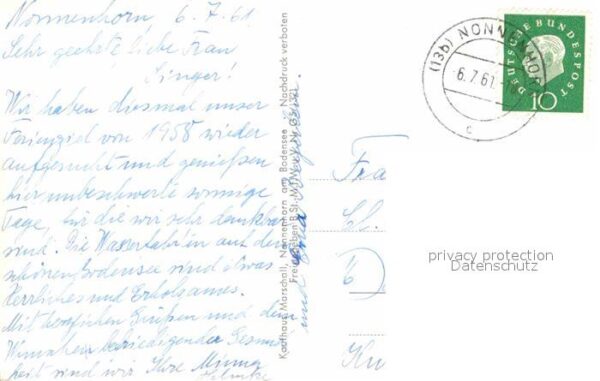 Nonnenhorn 6.7.61.
Sehr geehrte, liebe Frau
Singer!
Wir haben diesmal unser
Ferienziel von 1958 wieder
aufgesucht und genießen
hier unbeschwerte sonnige
Tage, für die wir sehr dankbar
sind. Die Wasserfahr'en auf dem
schönen Bodensee sind etwas
Herrliches und Erholsames.
Mit herzlichen Grüßen und den
Wünschen befriedigender Gesund
heit sind wir Ihre Minna
und Erna
Kaufhaus Marschall, Nonnenhorn am Bodensee — Nachdruck verboten
Freigegeben
(13b) NONNENHORN
6.7.61
c
DEUTSCHE BUNDESPOST
10
Fra
privacy protection
Datenschutz